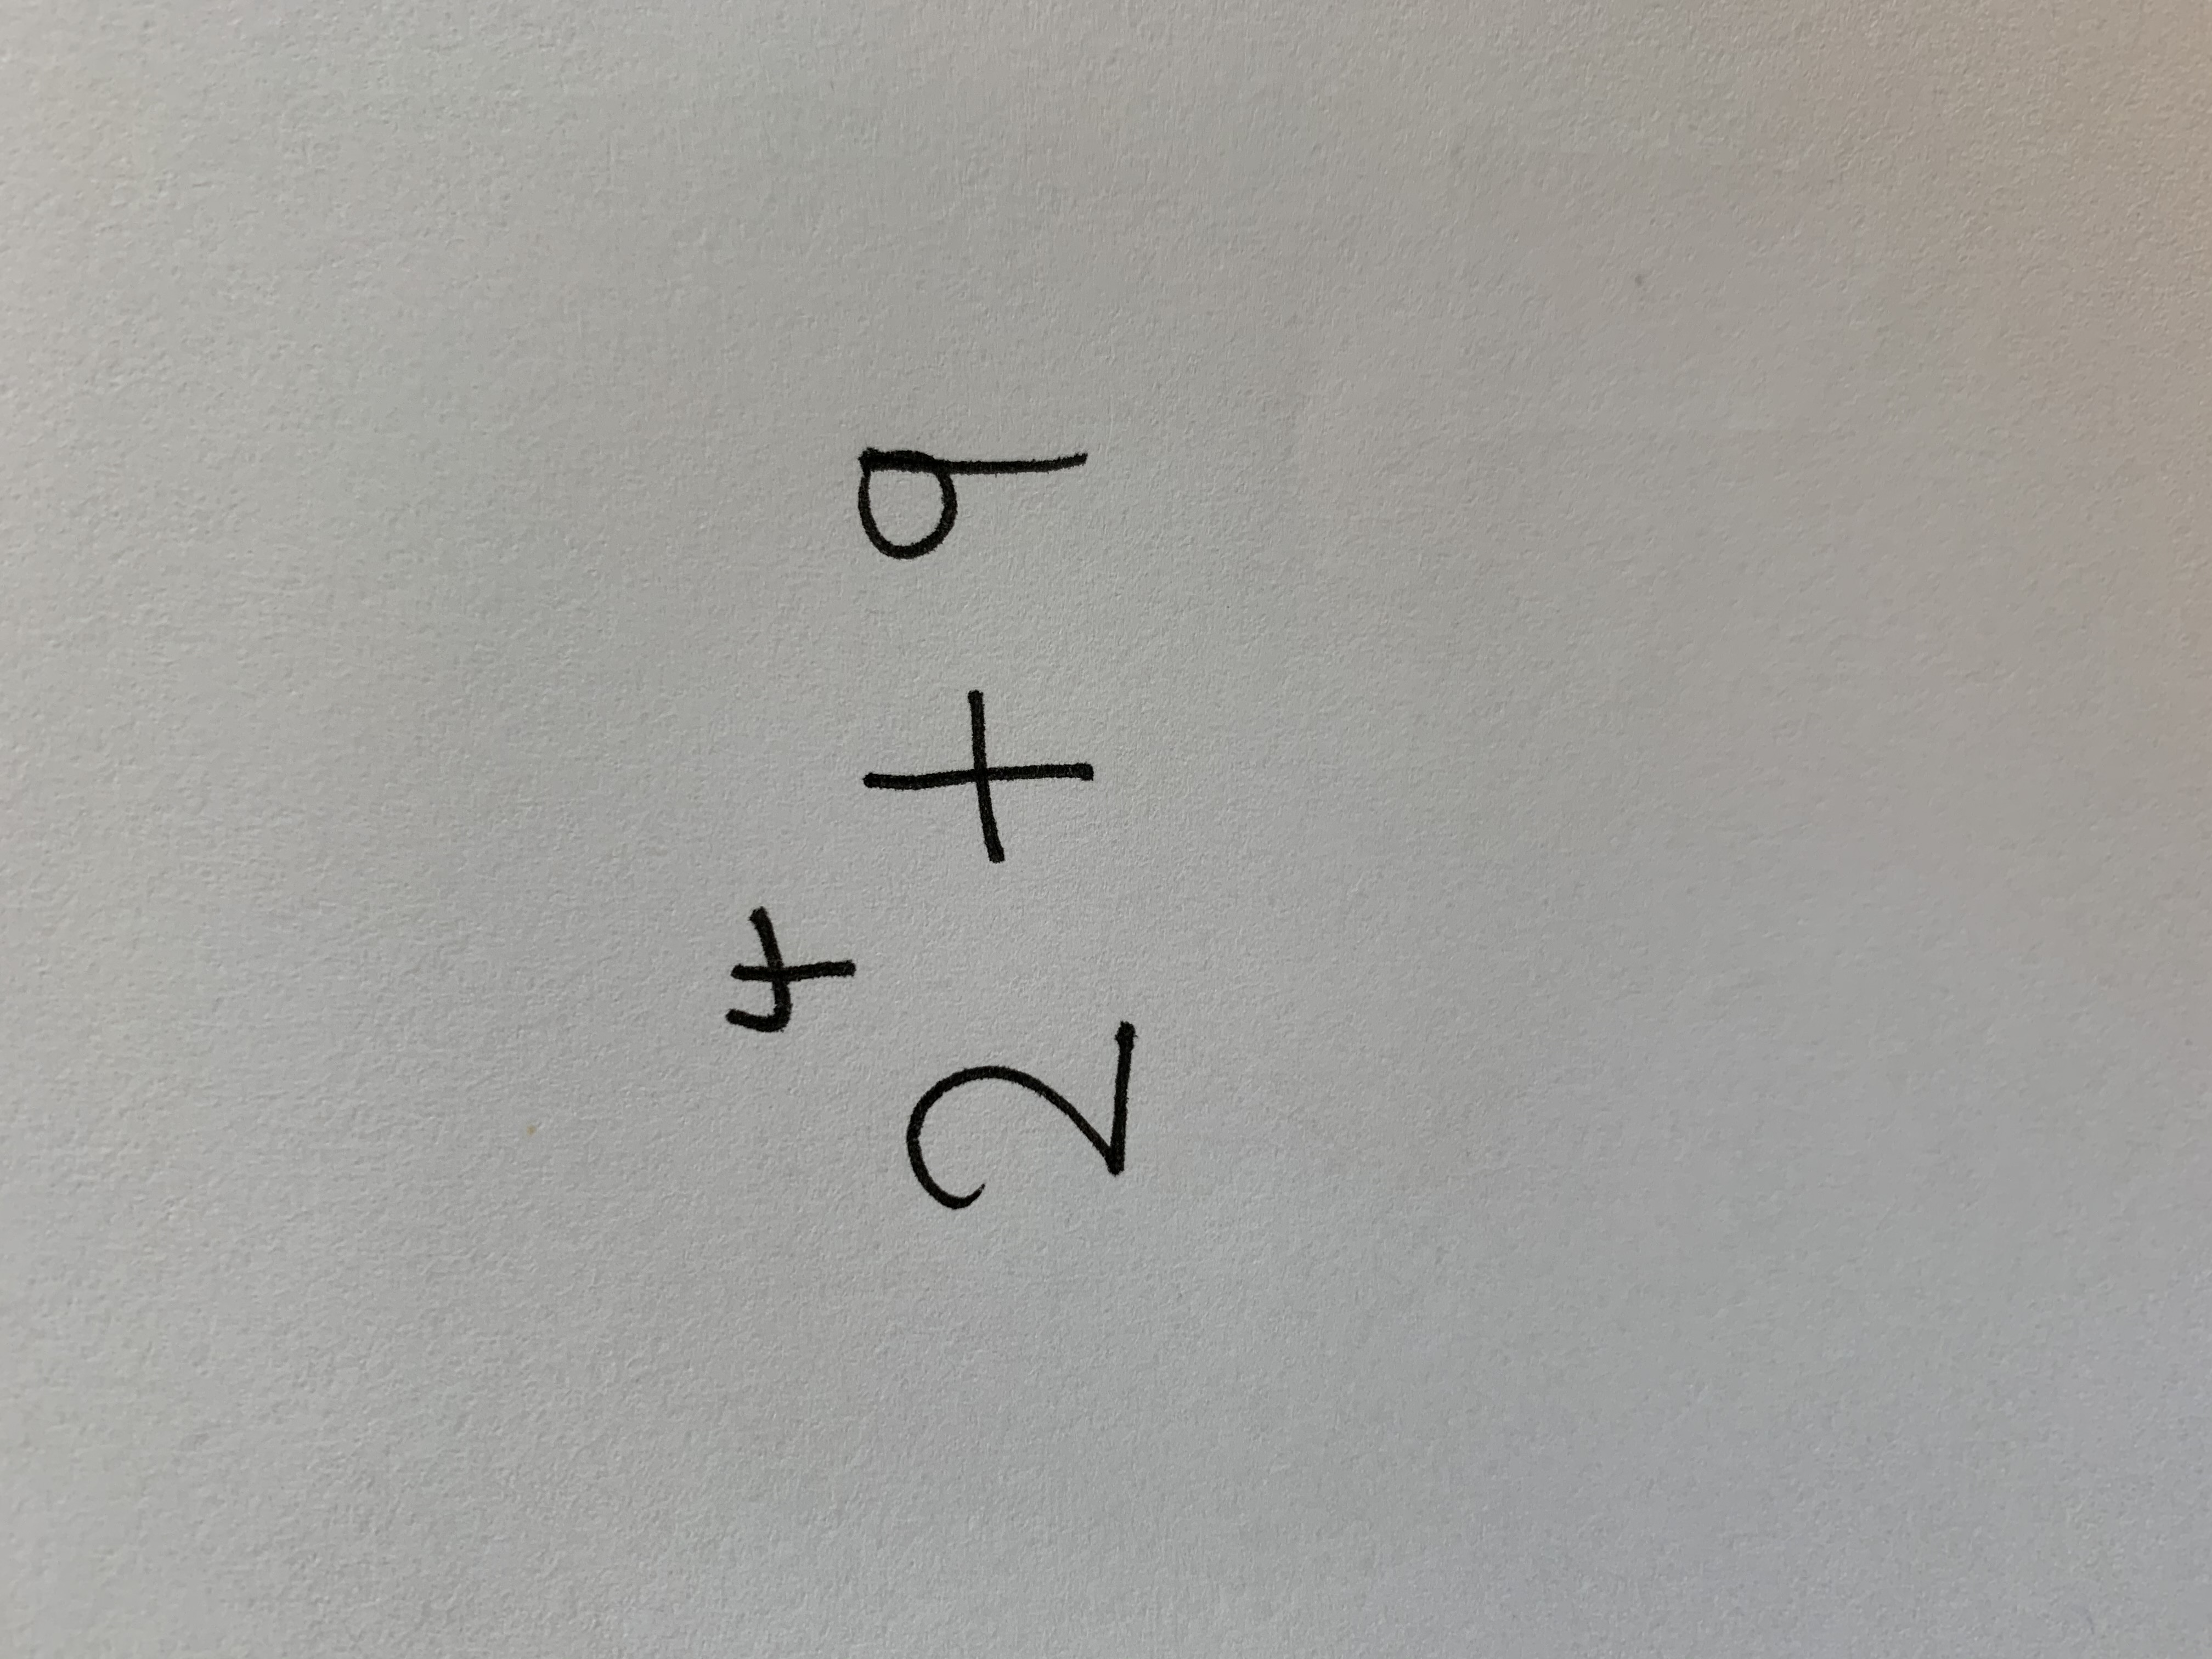 2⁴ + 9